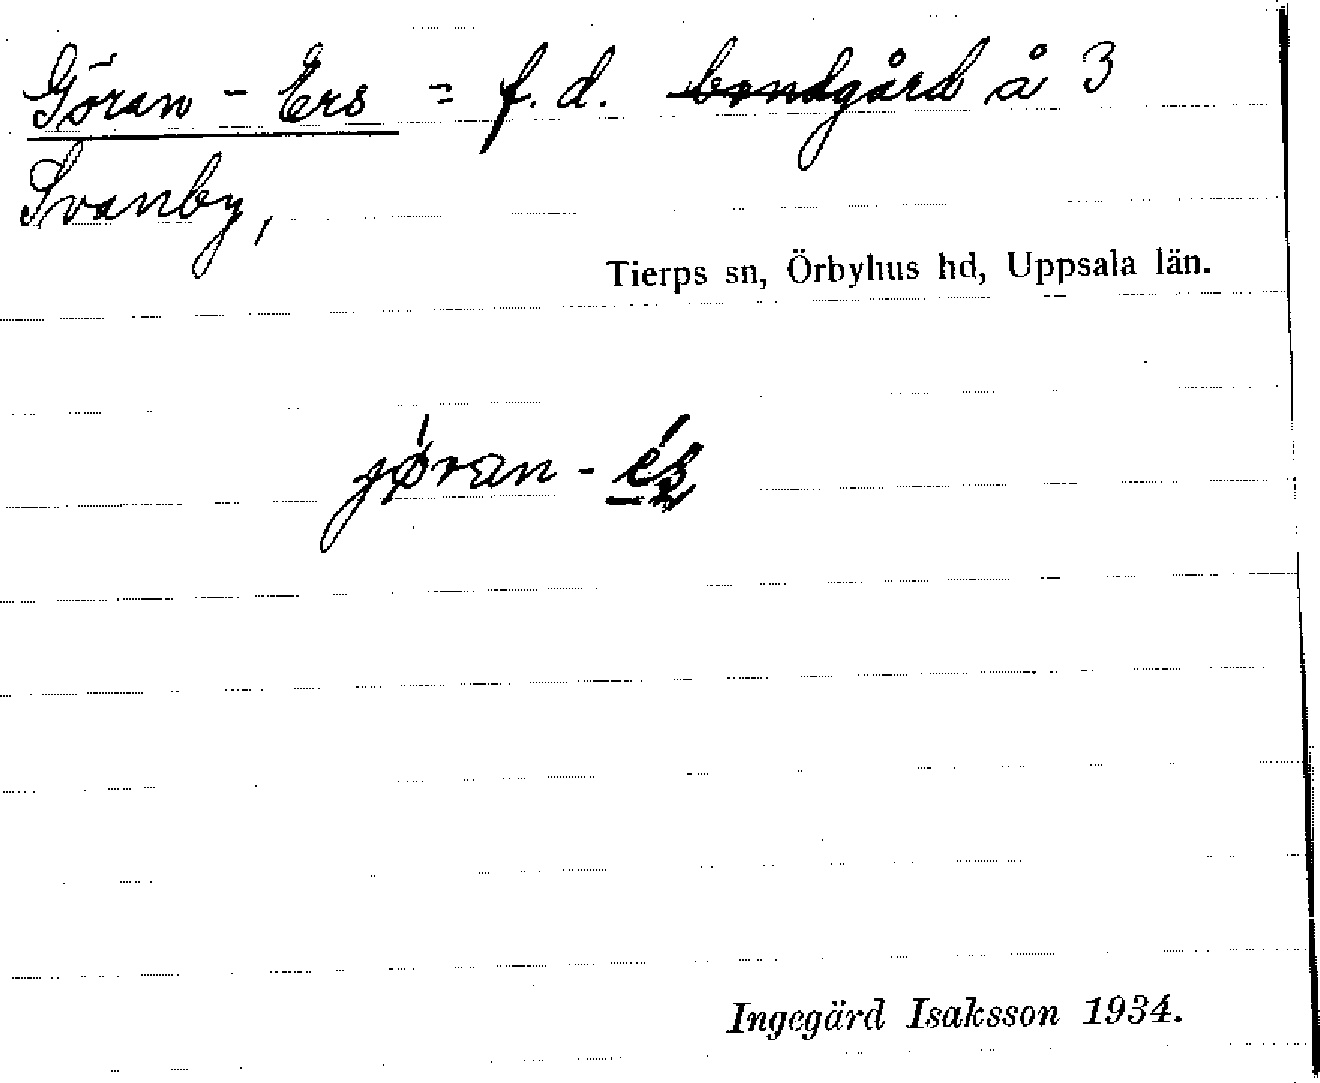 Göran - Ers = f.d. bondgård å 3
Svanby,
Tierps sn, Örbyhus hd, Uppsala län.
jø̀ran - és̠
Ingegärd Isaksson 1934.